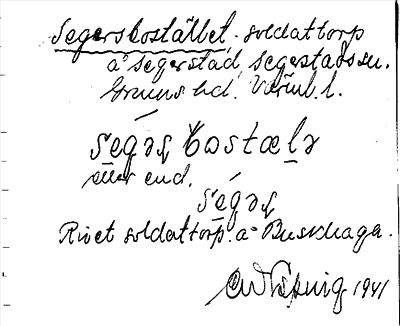 Segersbostället, soldattorp
å Segerstad, Segerstads sn.
Grums hd. Värml. l.
segəʂ bostælə
eller end.
segəʂ
Rivet soldattorp å Buskhaga.
1941